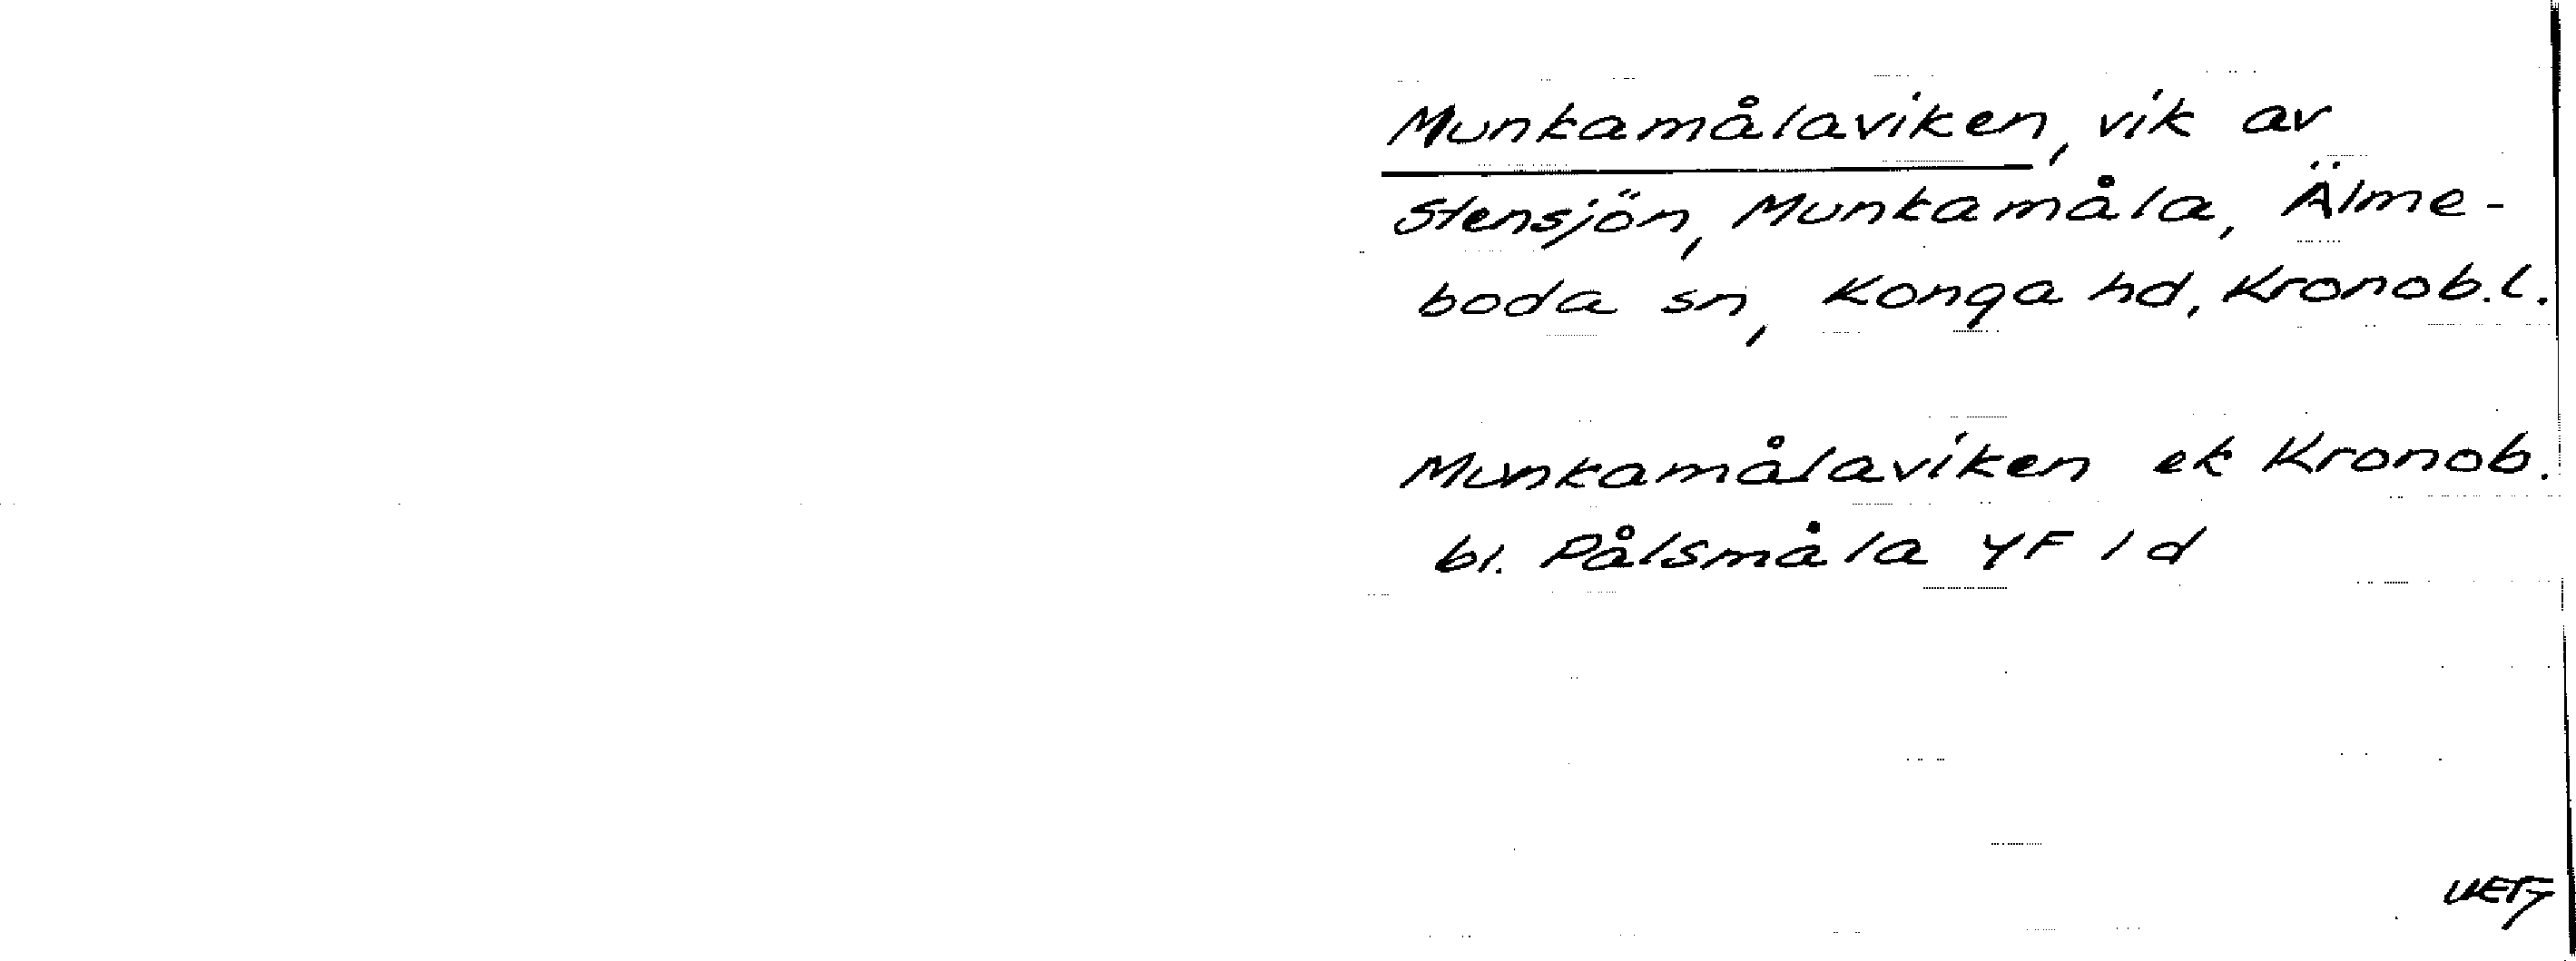 Munkamålaviken, vik av
Stensjön, Munkamåla, Älme-
boda sn, Konga hd, Kronob.l.
Munkamålaviken ek Kronob.
bl. Pålsmåla YF 1d